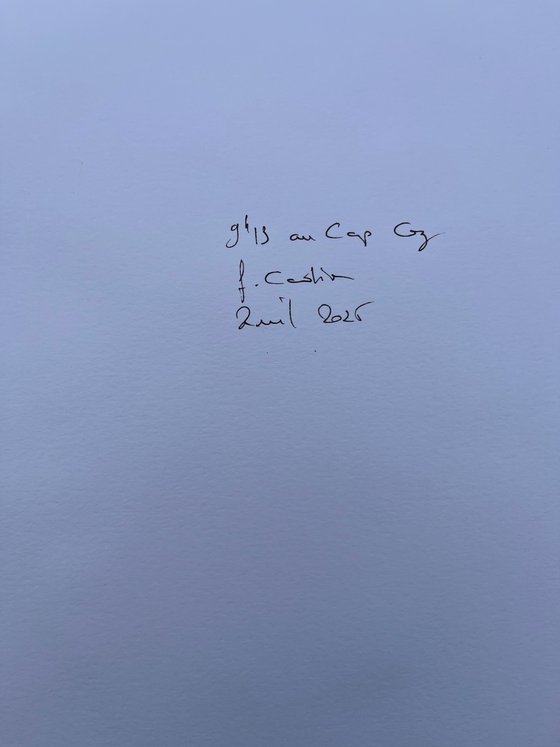 9h13 au Cap Coz
f. Castin
Avril 2025